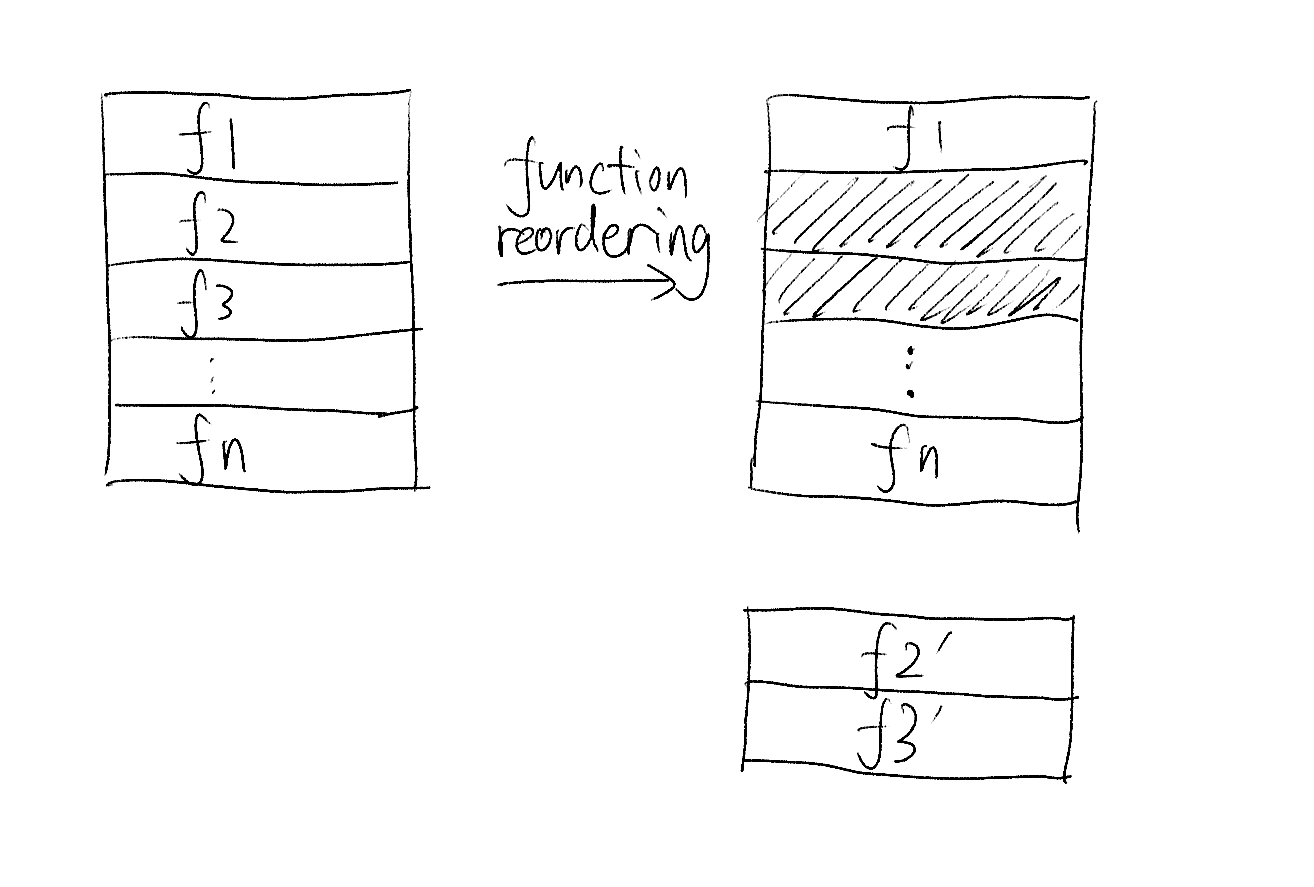 f1
f2
f3
⋮
fn
function
reordering
f1
⋮
fn
f2'
f3'